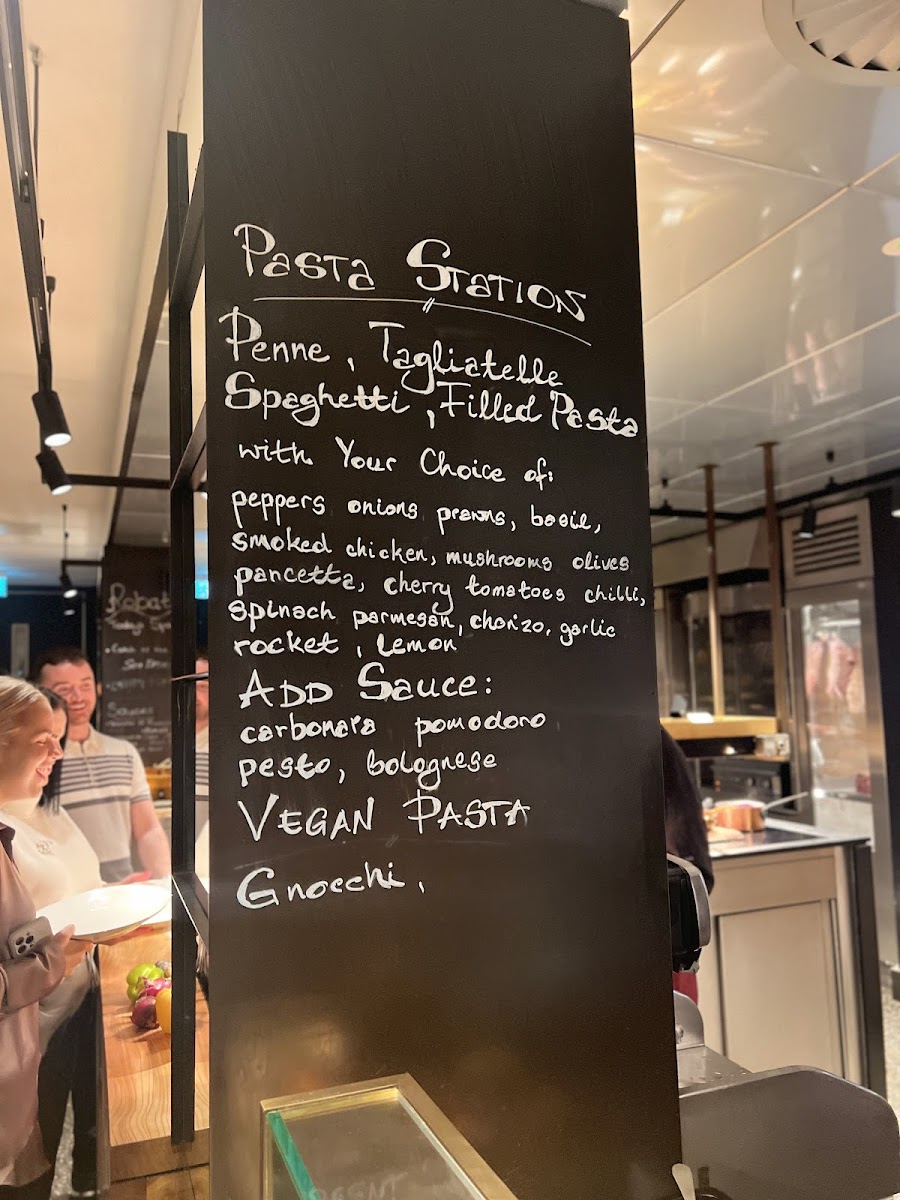 Pasta Station
Penne, Tagliatelle
Spaghetti, Filled Pasta
with Your Choice of:
peppers onions prawns, basil,
smoked chicken, mushrooms olives
pancetta, cherry tomatoes chilli,
spinach parmesan, chorizo, garlic
rocket, Lemon
ADD Sauce:
carbonara pomodoro
pesto, bolognese
VEGAN PASTA
Gnocchi,
Robat